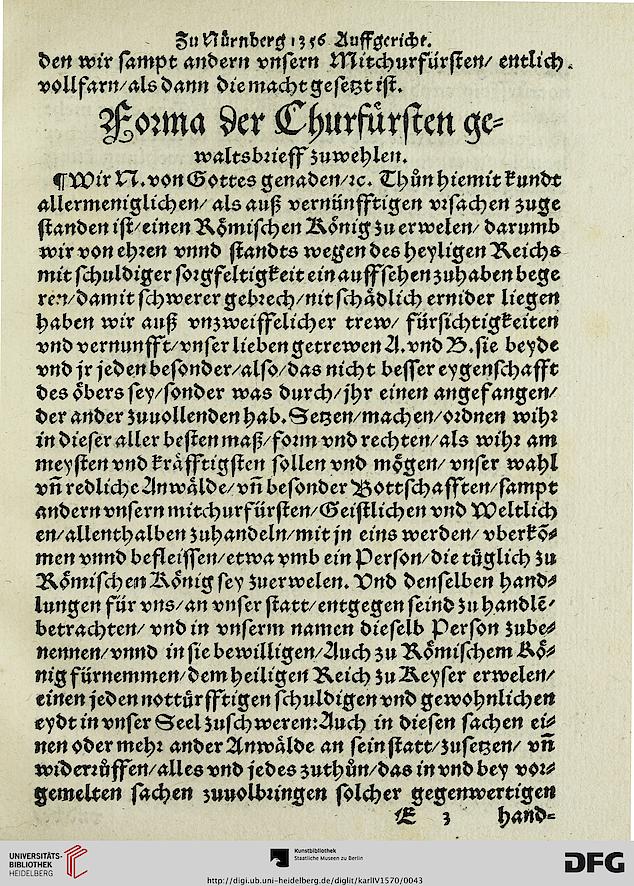 Zu Nürnberg 1356 Auffgericht.
den wir sampt andern vnsern Mitchurfürsten/ entlich
vollfarn/als dann die macht gesetzt ist.
Forma der Churfürsten ge⸗
waltsbrieff zuwehlen.
¶Wir N. von Gottes genaden/ꝛc. Thůn hiemit kundt
allermeniglichen/ als auß vernünfftigen vrsachen zuge
standen ist/einen Römischen König zu erwelen/ darumb
wir von ehren vnnd standts wegen des heyligen Reichs
mit schuldiger sorgfeltigkeit ein auffsehen zuhaben bege
ren/damit schwerer gebrech/nit schädlich ernider liegen
haben wir auß vnzweiffelicher trew/ fürsichtigkeiten
vnd vernunfft/vnser lieben getrewen A. vnd B. sie beyde
vnd jr jeden besonder/also/das nicht besser eygenschafft
des öbers sey/sonder was durch/jhr einen angefangen/
der ander zuuollenden hab. Setzen/machen/ordnen wihr
in dieser aller besten maß/form vnd rechten/als wihr am
meysten vnd kräfftigsten sollen vnd mögen/ vnser wahl
vñ redliche Anwälde/ vñ besonder Bottschafften/sampt
andern vnsern mitchurfürsten/Geistlichen vnd Weltlich
en/allenthalben zuhandeln/mit jn eins werden/ vberkö⸗
men vnnd befleissen/etwa vmb ein Person/die tüglich zu
Römischen König sey zuerwelen. Vnd denselben hand⸗
lungen für vns/an vnser statt/entgegen seind zu handlẽ/
betrachten/ vnd in vnserm namen dieselb Person zube⸗
nennen/vnnd in sie bewilligen/Auch zu Römischem Kö⸗
nig fürnemmen/dem heiligen Reich zu Keyser erwelen/
einen jeden nottürfftigen schuldigen vnd gewohnlichen
eydt in vnser Seel zuschweren:Auch in diesen sachen ei⸗
nen oder mehr ander Anwälde an sein statt/zusetzen/ vñ
widerrůffen/alles vnd jedes zuthůn/das in vnd bey vor⸗
gemelten sachen zuuolbringen solcher gegenwertigen
E 3 hand⸗
UNIVERSITÄTS-
BIBLIOTHEK
HEIDELBERG
Kunstbibliothek
Staatliche Museen zu Berlin
http://digi.ub.uni-heidelberg.de/diglit/karlIV1570/0043
DFG